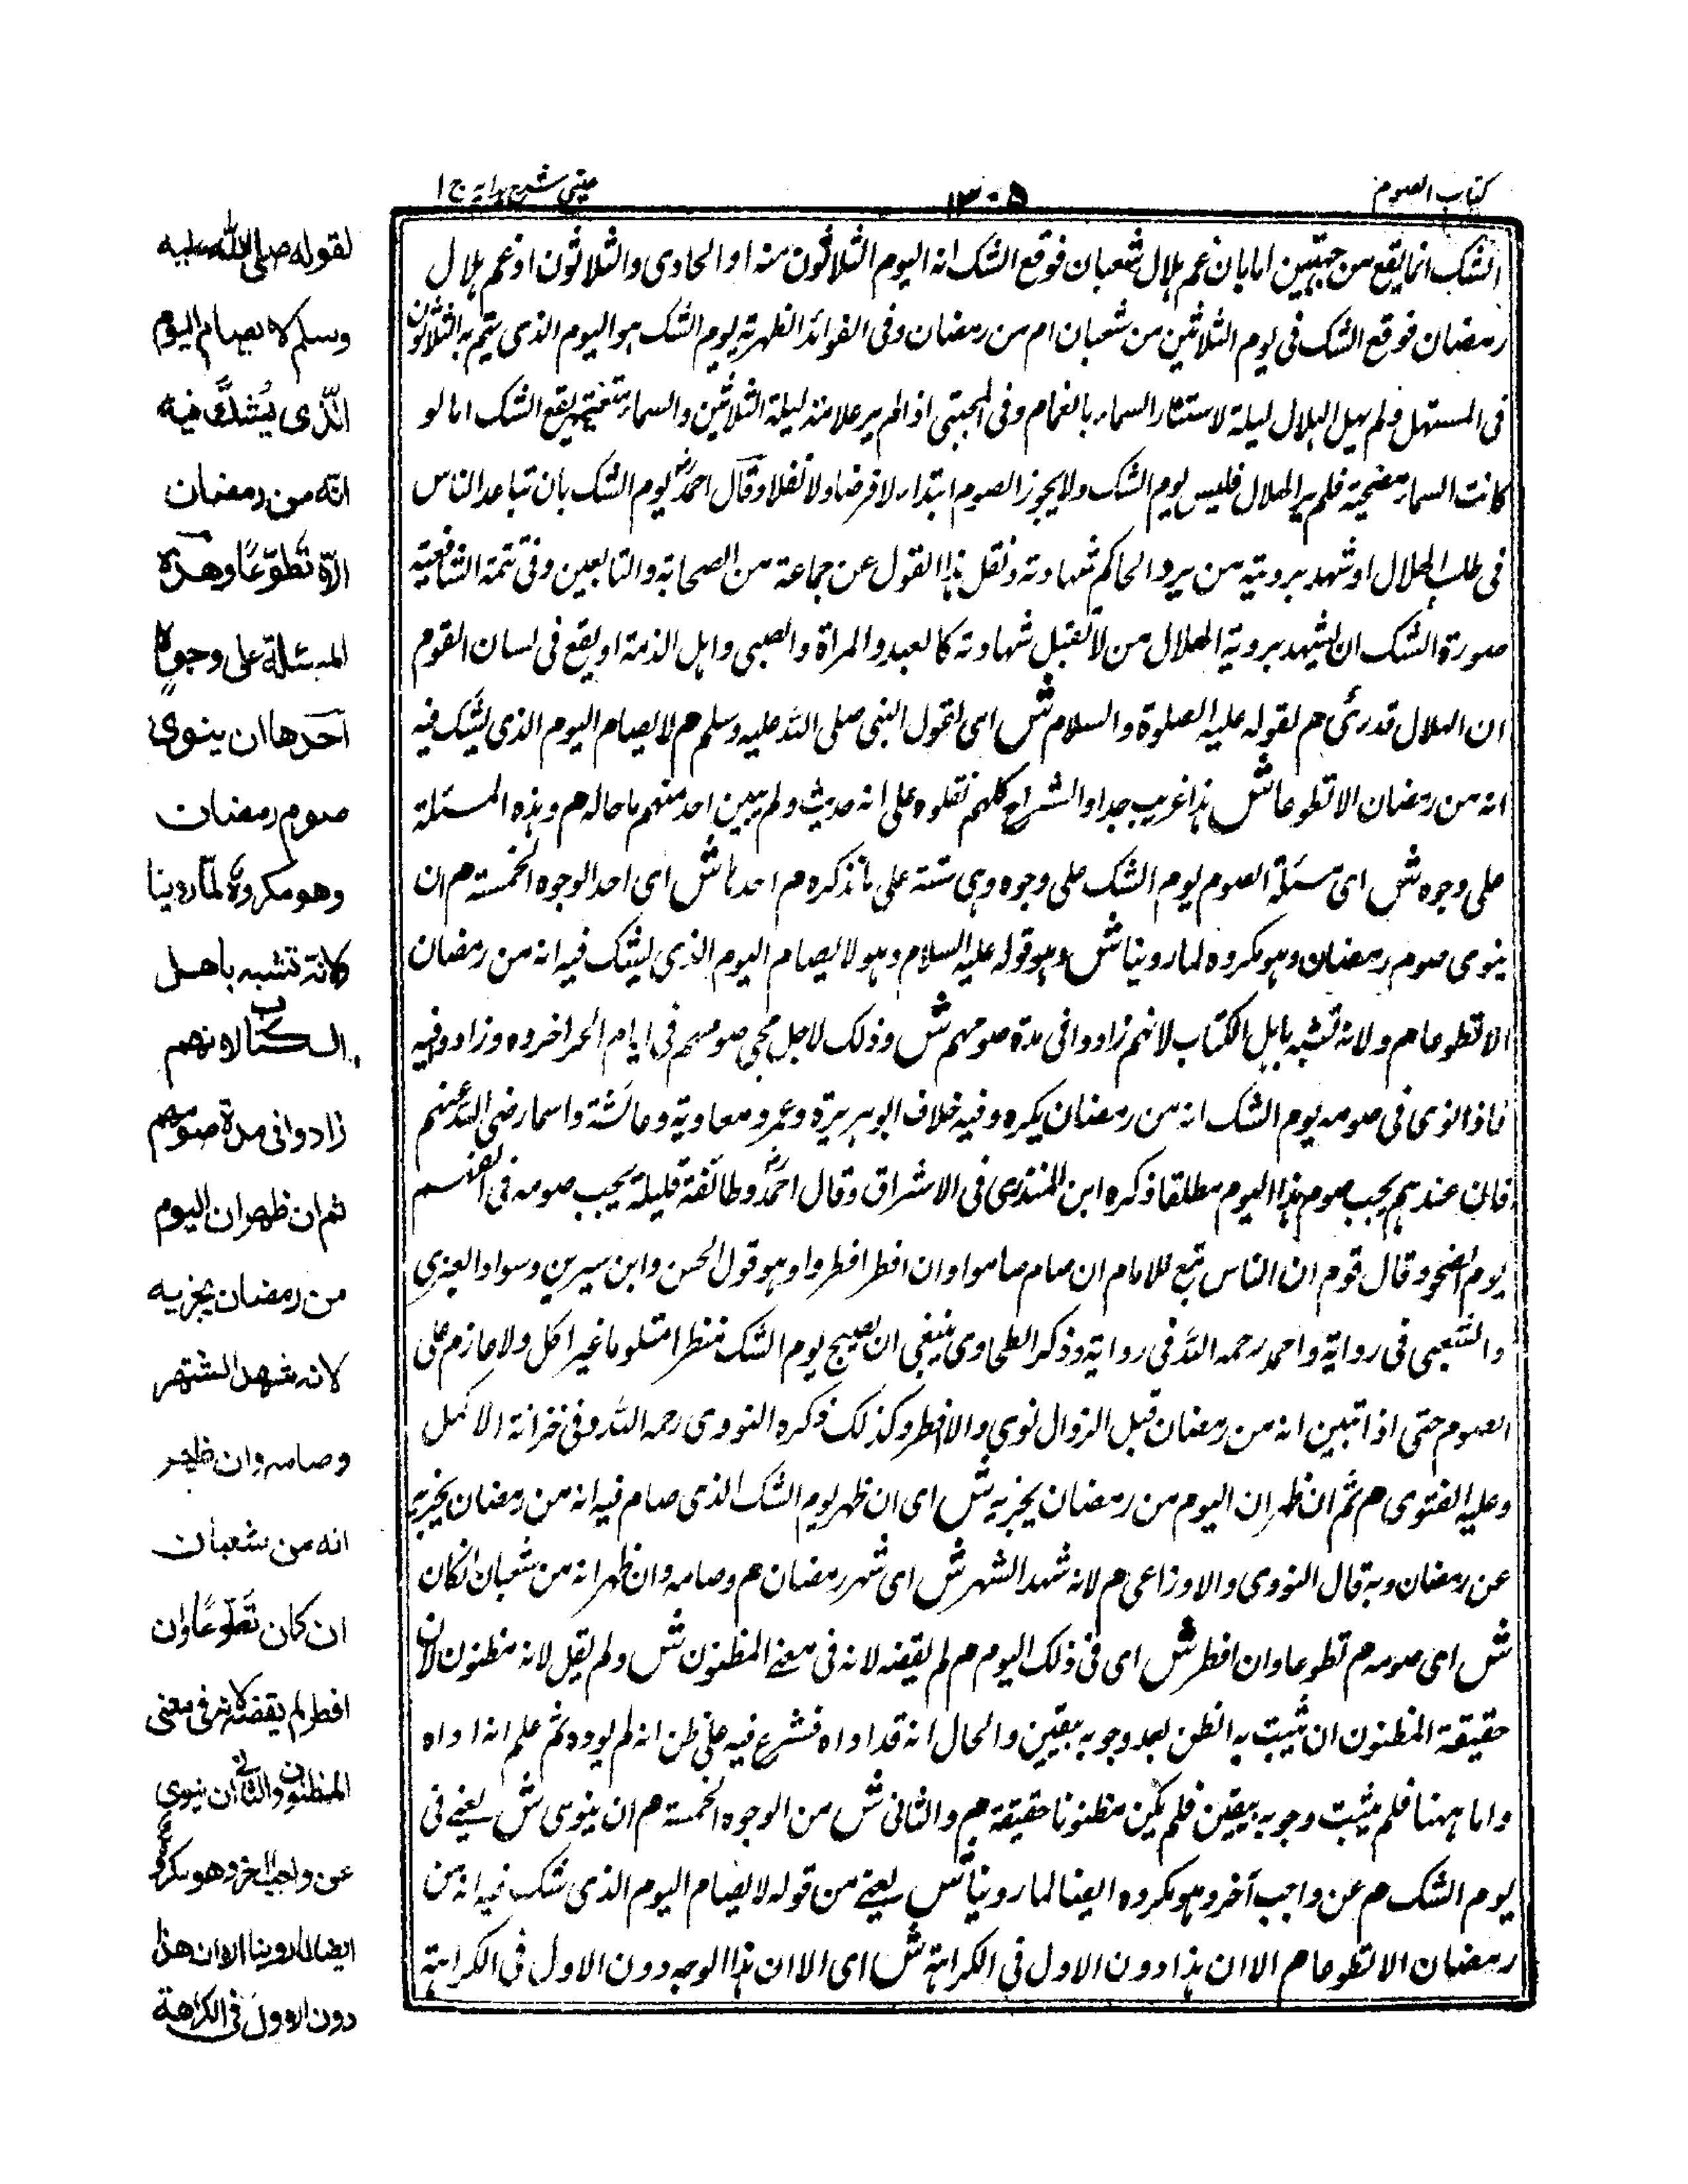 كتاب الصوم
١٣٠٥
عينى شرح هدايه ج ا
الشك انما يقع من جهتين اما بان غم هلال شعبان فوقع الشك انه اليوم الثلاثون منه او الحادى والثلاثون او غم هلال
رمضان فوقع الشك فى يوم الثلاثين من شعبان ام من رمضان وفى الفوائد الظهرية يوم الشك هو اليوم الذى يتم به الثلاثون
فى المستهل ولم يهل الهلال ليلة لاستتار السماء بالغمام وفى المجتبى اذا لم ير علامة ليلة الثلاثين والسماء متغيمة يقع الشك اما لو
كانت السماء مضحية فلم ير الهلال فليس يوم الشك ولا يجوز الصوم ابتداء لا فرضا ولا نفلا وقال احمد يوم الشك بان تباعد الناس
فى طلب الهلال او شهد برويته من يرد الحاكم شهادته ونقل هذا القول عن جماعة من الصحابة والتابعين وفى تتمة الشافعية
صورة الشك ان يشهد بروية الهلال من لا تقبل شهادته كالعبد والمراة والصبى واهل الذمة او يقع فى لسان القوم
ان الهلال قد رئى م لقوله عليه الصلوة والسلام ش اى لقول النبى صلى الله عليه وسلم م لا يصام اليوم الذى يشك فيه
انه من رمضان الا تطوعا ش هذا غريب جدا والشراح كلهم نقلوه على انه حديث ولم يبين احد منهم ما حاله م وهذه المسئلة
على وجوه ش اى مسئلة الصوم يوم الشك على وجوه وهى ستة على ما نذكره م احدها ش اى احد الوجوه الخمسة م ان
ينوى صوم رمضان وهو مكروه لما روينا ش وهو قوله عليه السلام وهو لا يصام اليوم الذى يشك فيه انه من رمضان
الا تطوعا م ولانه تشبه باهل الكتاب لانهم زادوا فى مدة صومهم ش وذلك لاجل مجى صومهم فى ايام الحر اخروه وزادوا فيه
فاذا نوى فى صومه يوم الشك انه من رمضان يكره وفيه خلاف ابو هريرة وعمر ومعاوية وعائشة واسماء رضى الله عنهم
فان عندهم يجب صوم هذا اليوم مطلقا ذكره ابن المنذر فى الاشراق وقال احمد وطائفة قليلة يجب صومه فى الغيم
يوم الضحو وقال قوم ان الناس تبع للامام ان صام صاموا وان افطر افطروا وهو قول الحسن وابن سيرين وسواد العنبرى
والشعبى فى رواية واحمد رحمه الله فى رواية وذكر الطحاوى ينبغى ان يصبح يوم الشك مفطرا متلوما غير اكل ولا عازم على
الصوم حتى اذا تبين انه من رمضان قبل الزوال نوى والا افطر وكذلك ذكره النووى رحمه الله وفى خزانة الاكمل
وعليه الفتوى م ثم ان ظهر ان اليوم من رمضان يجزيه ش اى ان ظهر يوم الشك الذى صام فيه انه من رمضان يجزيه
عن رمضان وبه قال النووى والاوزاعى م لانه شهد الشهر ش اى شهر رمضان م وصامه وان ظهر انه من شعبان كان
ش اى صومه م تطوعا وان افطر ش اى فى ذلك اليوم م لم يقضه لانه فى معنى المظنون ش ولم يقل لانه مظنون لان
حقيقة المظنون ان يثبت به الظن بعد وجوبه بيقين والحال انه قد اداه فشرع فيه على ظن انه لم يوده ثم علم انه اداه
واما ههنا فلم يثبت وجوبه بيقين فلم يكن مظنونا حقيقة م والثانى ش من الوجوه الخمسة م ان ينوى ش يعنى فى
يوم الشك م عن واجب آخر وهو مكروه ايضا لما روينا ش يعنى من قوله لا يصام اليوم الذى شك فيه انه من
رمضان الا تطوعا م الا ان هذا دون الاول فى الكراهة ش اى الا ان هذا الوجه دون الاول فى الكراهة
لقوله صلى الله عليه
وسلم لا يصام اليوم
الَّذى يُشَكُّ فيه
انّه من رمضان
الّا تَطَوُّعًا وهذه
المسئلة على وجوهٍ
احدها ان ينوى
صوم رمضان
وهو مكروهٌ لمّا روينا
لانه تشبه باهل
الكتاب لانهم
زادوا فى مدة صومهم
ثم ان ظهر ان اليوم
من رمضان يجزيه
لانه شهد الشهر
وصامه وان ظهر
انه من شعبان
ان كان تَطَوُّعًا وان
افطر لم يقضه لانه فى معنى
المظنون والثانى ان ينوى
عن واجب اخر وهو مكروه
ايضا لما روينا الا ان هذا
دون الاول فى الكراهة